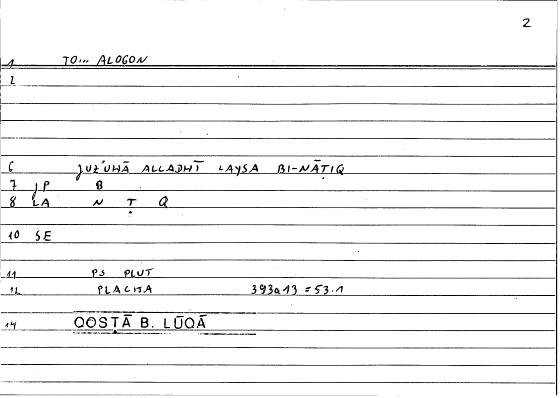 2
1 TO... ALOGON
2
6 ǦUZ'UHĀ ALLAḎHĪ LAYSA BI-NĀṬIQ
7 ǦP B
8 LA N Ṭ Q
10 SE
11 PS PLUT
12 PLACITA 393a13 = 53.1
14 QOSṬĀ B. LŪQĀ